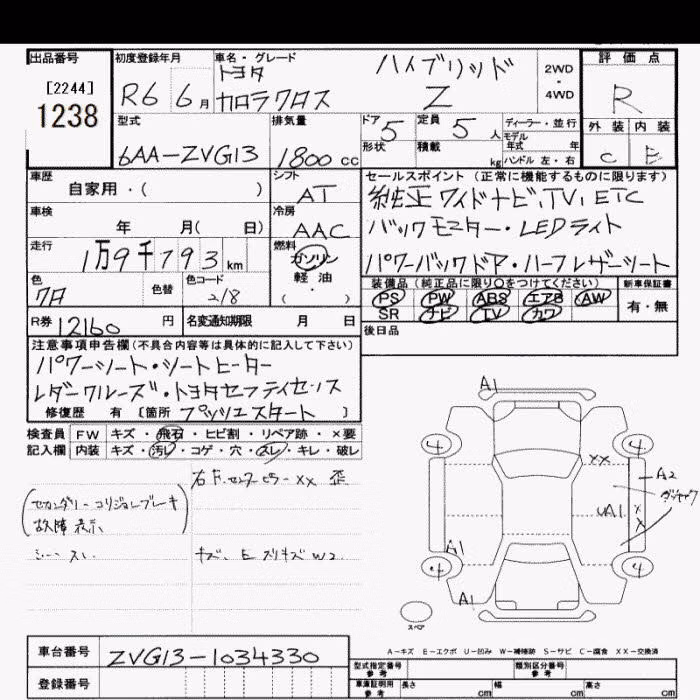 出品番号 初度登録年月 車名・グレード 評価点
[2244] トヨタ ハイブリッド 2WD・4WD
1238 R6 6月 カロラクロス Z R
型式 排気量 ドア 5 定員 5人 ディーラー・並行 外装 内装
6AA-ZVG13 1800cc 形状 積載 kg モデル年式 年 ハンドル 左・右 C
車歴 シフト セールスポイント(正常に機能するものに限ります)
自家用・( ) AT 純正ワイドナビ、TV、ETC
車検 冷房 バックモニター・LEDライト
年 月( 日) AAC
走行 燃料 パワーバックドア・ハーフレザーシート
1万9千793km ガソリン
軽油
( ・ )
色 色替 色カラーコード 装備品(純正品に限り○をつけてください) 新車保証書
218 PS PW ABS エアB AW 有・無
SR ナビ TV カワ
R券 12160円 名変通知期限 月 日 後日品
注意事項申告欄(不具合内容等は具体的に記入して下さい)
パワーシート・シートヒーター
レダークルーズ・トヨタセフティセンス
修復歴 有 [箇所 プッシュスタート ]
検査員 FW キズ・飛石・ヒビ割・リペア跡・×要
記入欄 内装 キズ・汚レ・コゲ・穴・スレ・キレ・破レ
右F、センターピラーXX 歪
(セカンダリーコリジョンブレーキ
故障表示)
シートスレ
キズ、E スリキズ W2
A1
4 4
XX
A2
UA1 X
X
A1
4 4
A1
スペア
車台番号 ZVG13-1034330
A-キズ E-エクボ U-凹み W-補修跡 S-サビ C-腐食 XX-交換済
登録番号
型式指定番号 参考 類別区分番号 参考
車庫証明用 参考 長さ cm 幅 cm 高さ cm